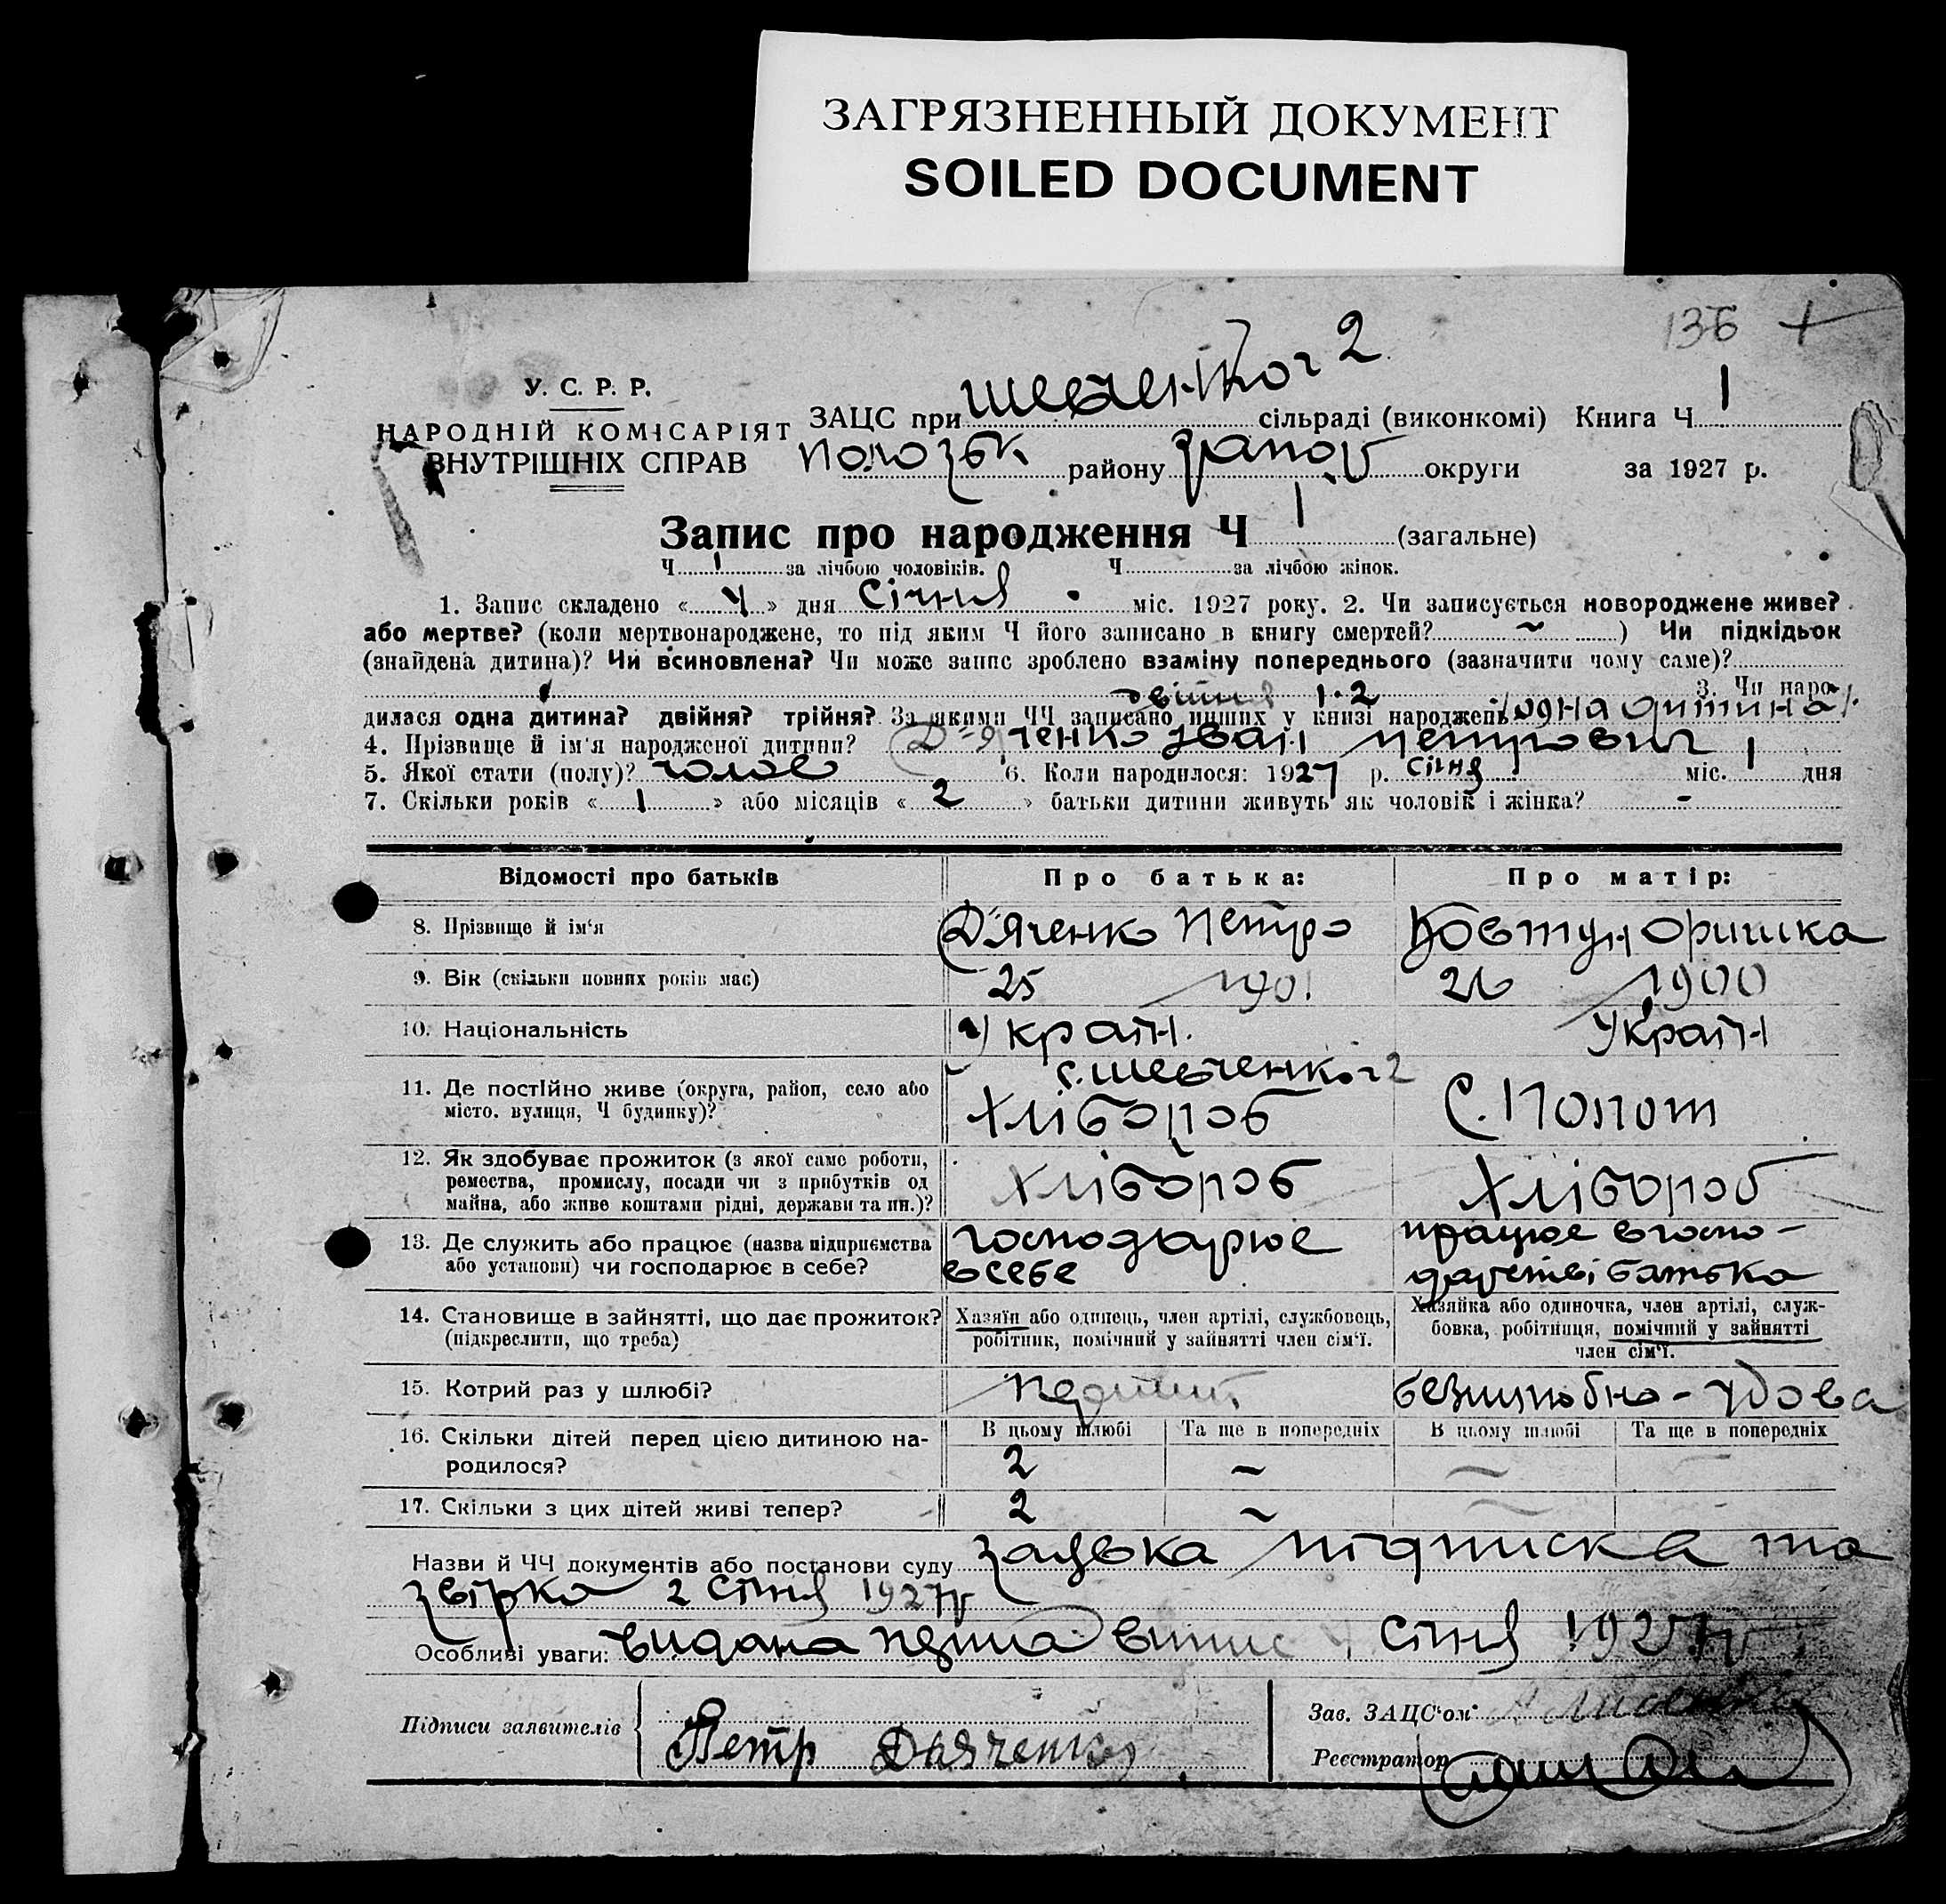 ЗАГРЯЗНЕННЫЙ ДОКУМЕНТ
SOILED DOCUMENT
136 +
У. С. Р. Р.
НАРОДНІЙ КОМІСАРІЯТ
ВНУТРІШНІХ СПРАВ
ЗАЦС при Шевченког 2 сільраді (виконкомі) Книга Ч 1
Пологзьк району Запор округи за 1927 р.
Запис про народження Ч 1 (загальне)
Ч 1 за лічбою чоловіків. Ч за лічбою жінок.
1. Запис складено « 4 » дня Січня міс. 1927 року. 2. Чи записується новороджене живе?
або мертве? (коли мертвонароджене, то під яким Ч його записано в книгу смертей? ~ ) Чи підкідьок
(знайдена дитина)? Чи всиновлена? Чи може запис зроблено взаміну попереднього (зазначити чому саме)?
двійня 1-2 3. Чи наро-
дилася одна дитина? двійня? трійня? За якими ЧЧ записано инших у книзі народжень одна дитина
4. Прізвище й ім'я народженої дитини? Д"яченко Іван Петрович
5. Якої стати (полу)? чолов 6. Коли народилося: 1927 р. січня міс. 1 дня
7. Скільки років « 1 » або місяців « 2 » батьки дитини живуть як чоловік і жінка? -
Відомості про батьків Про батька: Про матір:
8. Прізвище й ім'я Д"яченко Петро Ковтун Оришка
9. Вік (скільки повних років має) 25 1901 26 1900
10. Національність Україн. Україн
11. Де постійно живе (округа, район, село або
місто. вулиця, Ч будинку)? с. Шевченког 2 Хлібороб С. Пологи
12. Як здобуває прожиток (з якої саме роботи,
ремества, промислу, посади чи з прибутків од
майна, або живе коштами рідні, держави та ин.)? Хлібороб Хлібороб
13. Де служить або працює (назва підприємства
або установи) чи господарює в себе? господарює в себе працює в госпо-
дарстві батька
14. Становище в зайнятті, що дає прожиток?
(підкреслити, що треба)
Хазяїн або одинець, член артілі, службовець,
робітник, помічний у зайнятті член сім'ї.
Хазяйка або одиночка, член артілі, служ-
бовка, робітниця, помічний у зайнятті
член сім'ї.
15. Котрий раз у шлюбі? Перший безшлюбно - удова
16. Скільки дітей перед цією дитиною на-
родилося?
В цьому шлюбі Та ще в попередніх В цьому шлюбі Та ще в попередніх
2 ~ ~ -
17. Скільки з цих дітей живі тепер? 2 ~ ~ -
Назви й ЧЧ документів або постанови суду заявка підписка та
звірка 2 січня 1927 р
Особливі уваги: видана перша випис 4 січня 1927 р
Підписи заявителів Петр Дьяченко
Зав. ЗАЦС'ом
Реєстратор